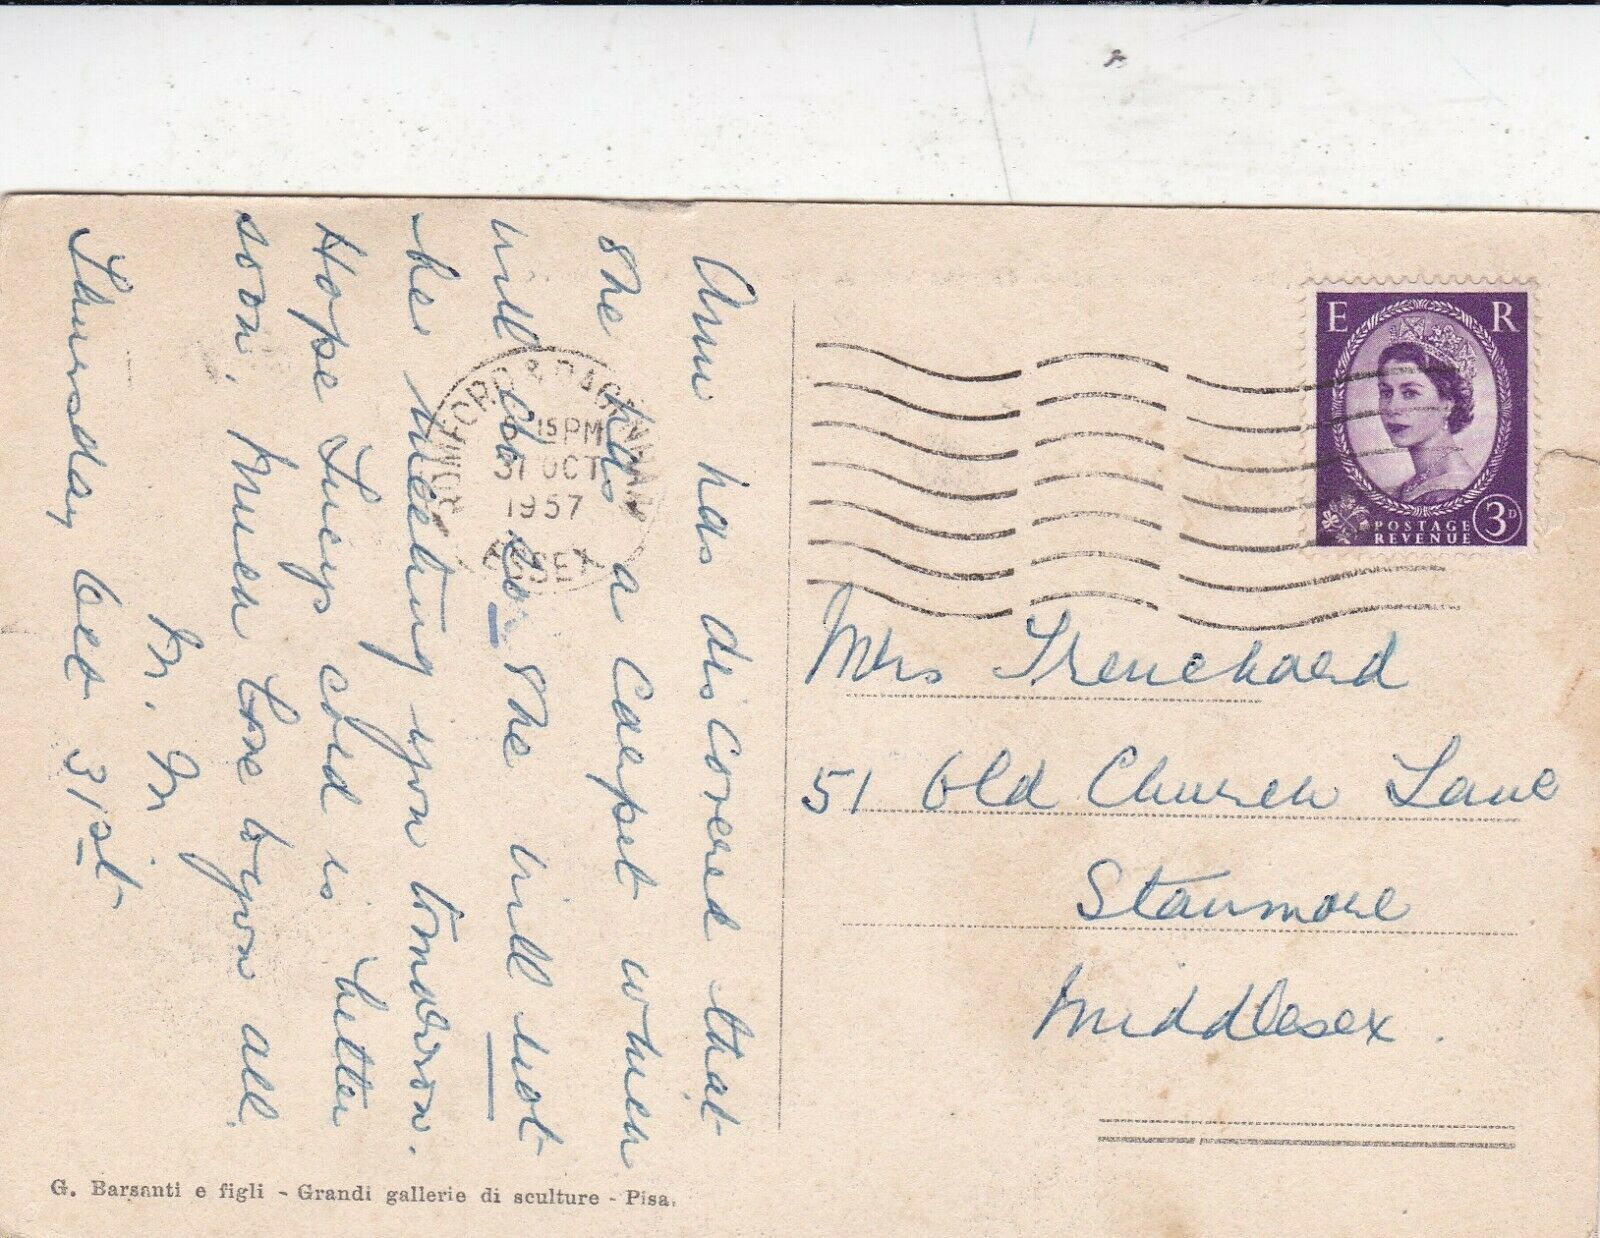 Ann has discovered that
she has a carpet which
will do so she will not
be meeting you tomorrow.
Hope Lucys cold is better
soon, Much love to you all.
Thursday Oct 31st
E R
POSTAGE
REVENUE
3D
ROMFORD & DAGENHAM
15 PM
31 OCT
1957
ESSEX
Mrs Trenchard
51 Old Church Lane
Stanmore
Middlesex.
G. Barsanti e figli - Grandi gallerie di sculture - Pisa.